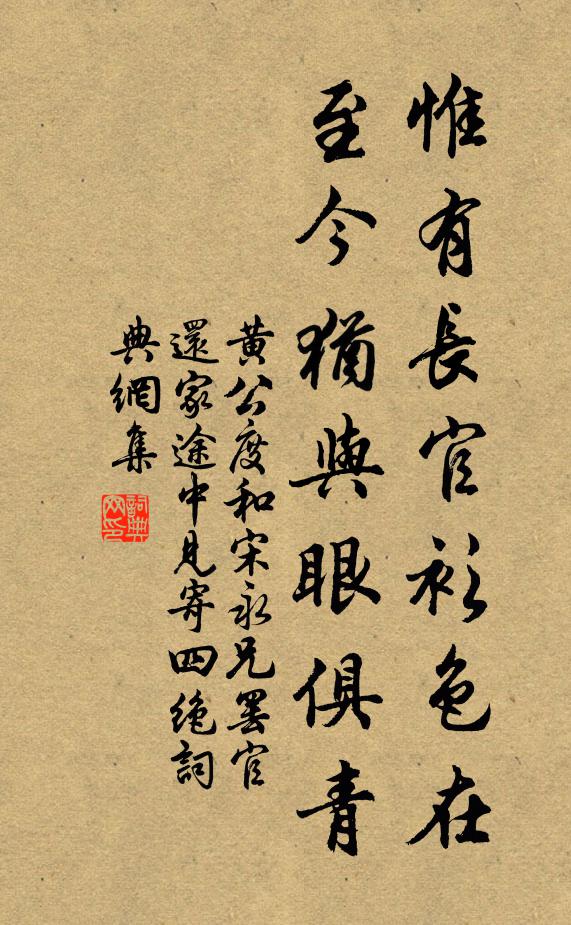 惟有長官衫色在
至今猶與眼俱青
黄公度和宋永兄罢官
還家途中見寄四绝詞
典網集
詞典网印